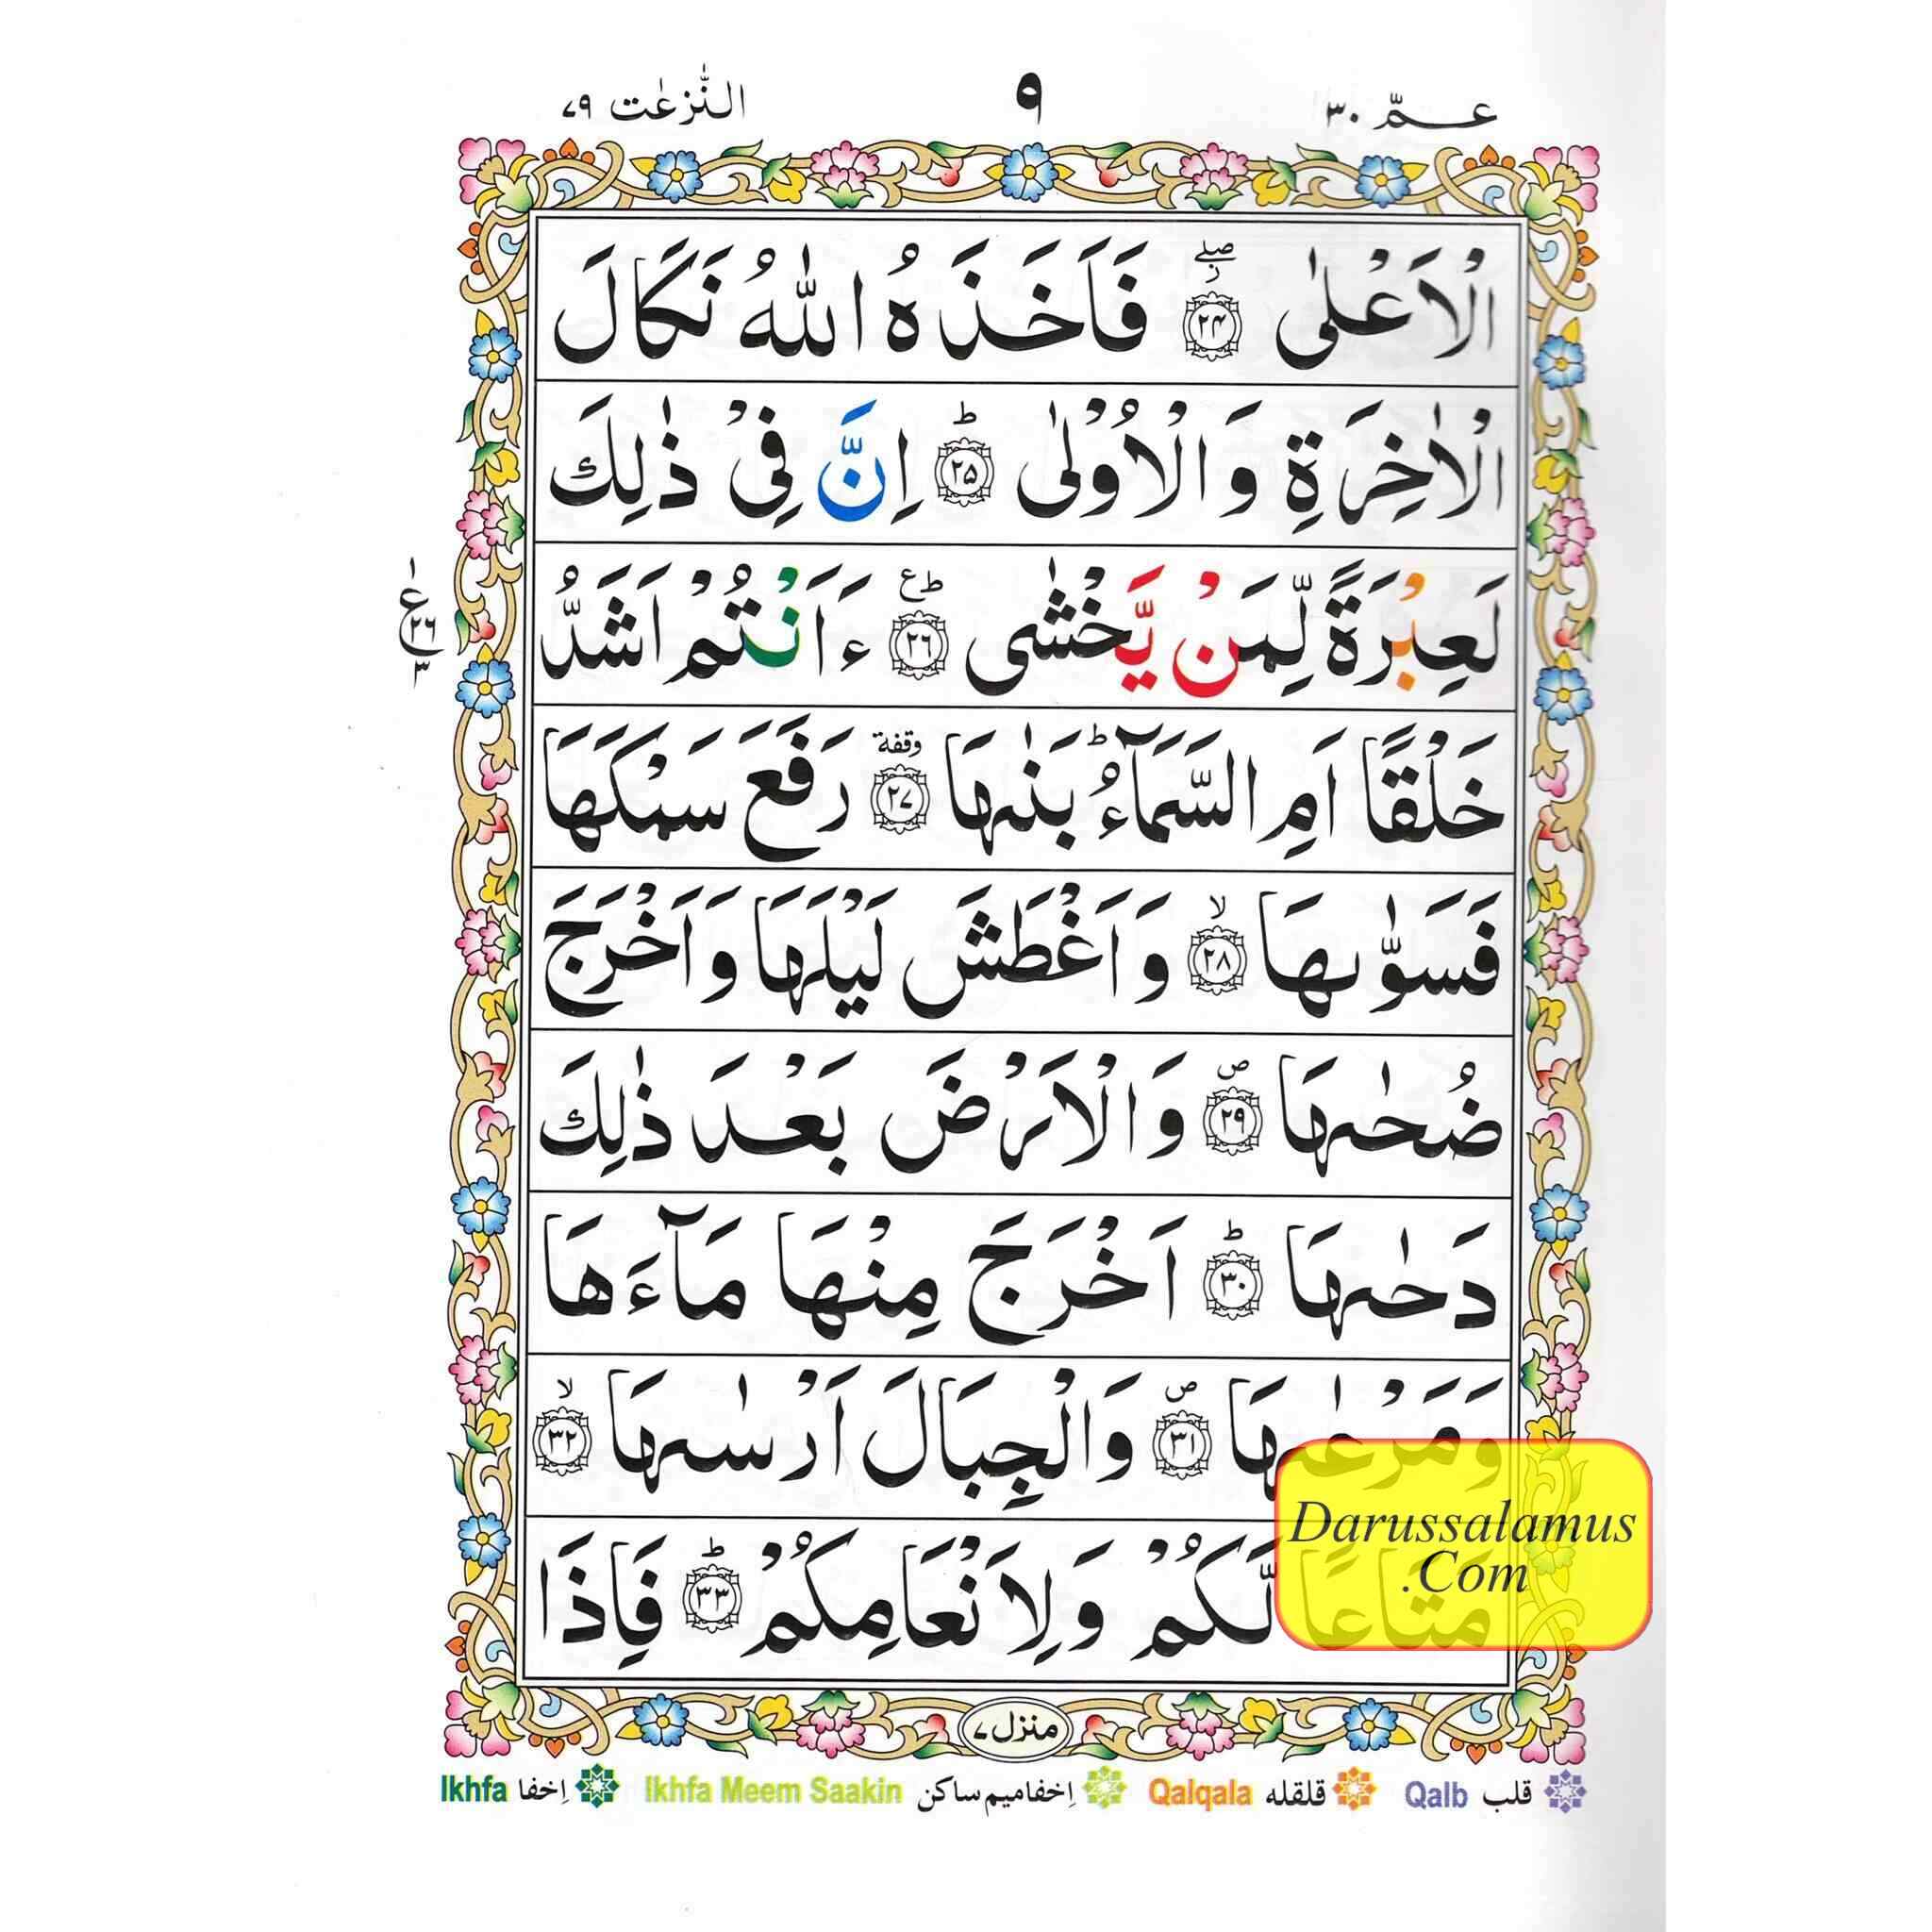 عــمّ ٣٠ ٩ النّٰزعٰت ٧٩
الْاَعْلٰى ﴿٢٤﴾ صلے ز فَاَخَذَهُ اللّٰهُ نَكَالَ
الْاٰخِرَةِ وَالْاُوْلٰى ﴿٢٥﴾ ط اِنَّ فِیْ ذٰلِكَ
لَعِبْرَةً لِّمَنْ یَّخْشٰى ﴿٢٦﴾ ط ع ءَاَنْتُمْ اَشَدُّ
ع ٢٦ ٣
خَلْقًا اَمِ السَّمَآءُ ط بَنٰىهَا ﴿٢٧﴾ وقفة رَفَعَ سَمْكَهَا
فَسَوّٰىهَا ﴿٢٨﴾ لا وَاَغْطَشَ لَیْلَهَا وَاَخْرَجَ
ضُحٰىهَا ﴿٢٩﴾ ص وَالْاَرْضَ بَعْدَ ذٰلِكَ
دَحٰىهَا ﴿٣٠﴾ ط اَخْرَجَ مِنْهَا مَآءَهَا
وَمَرْعٰىهَا ﴿٣١﴾ ص وَالْجِبَالَ اَرْسٰىهَا ﴿٣٢﴾ لا
مَتَاعًا لَّكُمْ وَلِاَنْعَامِكُمْ ﴿٣٣﴾ ط فَاِذَا
Darussalamus
.Com
منزل ٧
قلب Qalb قلقله Qalqala اِخفامیم ساکن Ikhfa Meem Saakin اِخفا Ikhfa